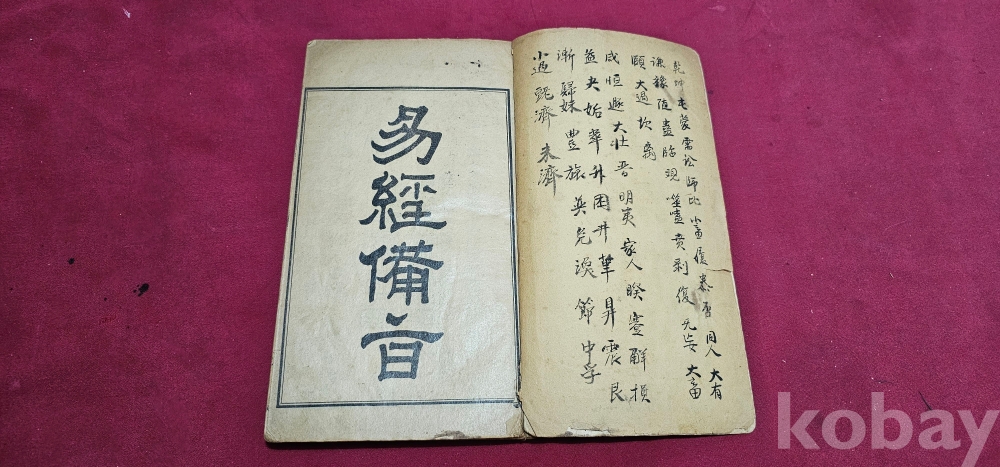 易經備旨
乾坤屯蒙需訟師比小畜履泰否同人大有
謙豫隨蠱臨觀噬嗑賁剝復无妄大畜
頤大過坎離
咸恒遯大壯晋明夷家人睽蹇解損
益夬姤萃升困井革鼎震艮
漸歸妹豐旅巽兌渙節中孚
小過既濟未濟
kobay